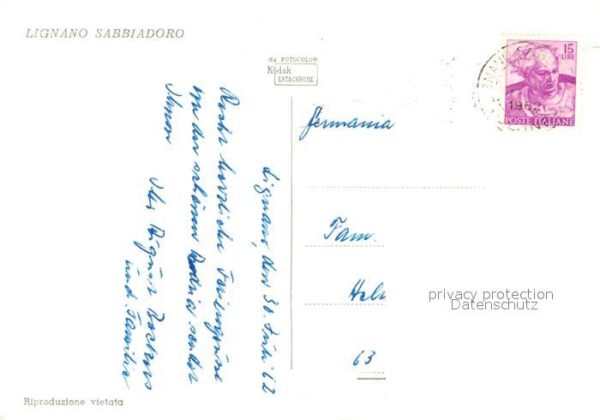 LIGNANO SABBIADORO
da FOTOCOLOR
Kodak
EKTACHROME
15
LIRE
1962
POSTE ITALIANE
Germania
Fam.
63
privacy protection
Datenschutz
Lignano, den 30. Juli 62
Recht herzliche Feriengrüsse
von der schönen Adria sendet
Ihnen
Ihr August
und Familie
Riproduzione vietata